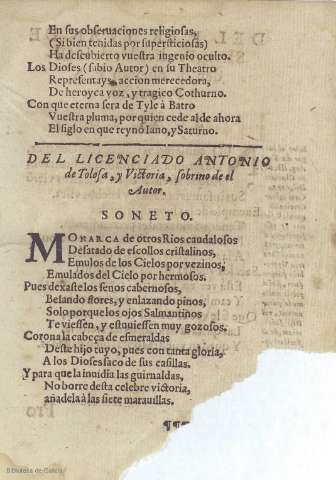 En sus obseruaciones religiosas,
(Si bien tenidas por supersticiosas)
Ha descubierto vuestra ingenio oculto.
Los Dioses (sabio Autor) en su Theatro
Representays, accion merecedora,
De heroyca voz, y tragico Cothurno.
Con que eterna sera de Tyle à Batro
Vuestra pluma, por quien cede al de ahora
El siglo en que reynô Iano, y Saturno.
DEL LICENCIADO ANTONIO
de Tolosa, y Victoria, sobrino de el
Autor.
SONETO.
MONARCA de otros Rios caudalosos
Desatado de escollos cristalinos,
Emulos de los Cielos por vezinos,
Emulados del Cielo por hermosos.
Pues dexaste los seños cabernosos,
Besando flores, y enlazando pinos,
Solo porque los ojos Salmantinos
Te viessen, y estuuiessen muy gozosos.
Corona la cabeça de esmeraldas
Deste hijo tuyo, pues con tanta gloria,
A los Dioses saco de sus casillas.
Y para que la inuidia las guirnaldas,
No borre desta celebre victoria,
añadela à las siete marauillas.
Biblioteca de Galicia